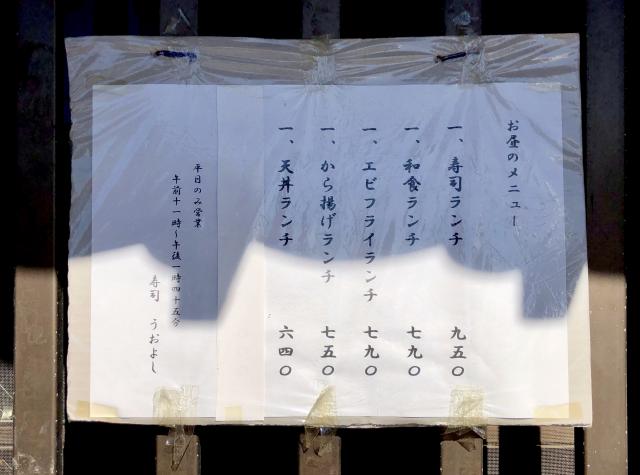 お昼のメニュー
一、寿司ランチ 九五〇
一、和食ランチ 七九〇
一、エビフライランチ 七九〇
一、から揚げランチ 七五〇
一、天丼ランチ 六四〇
平日のみ営業
午前十一時～午後一時四十五分
寿司 うおよし